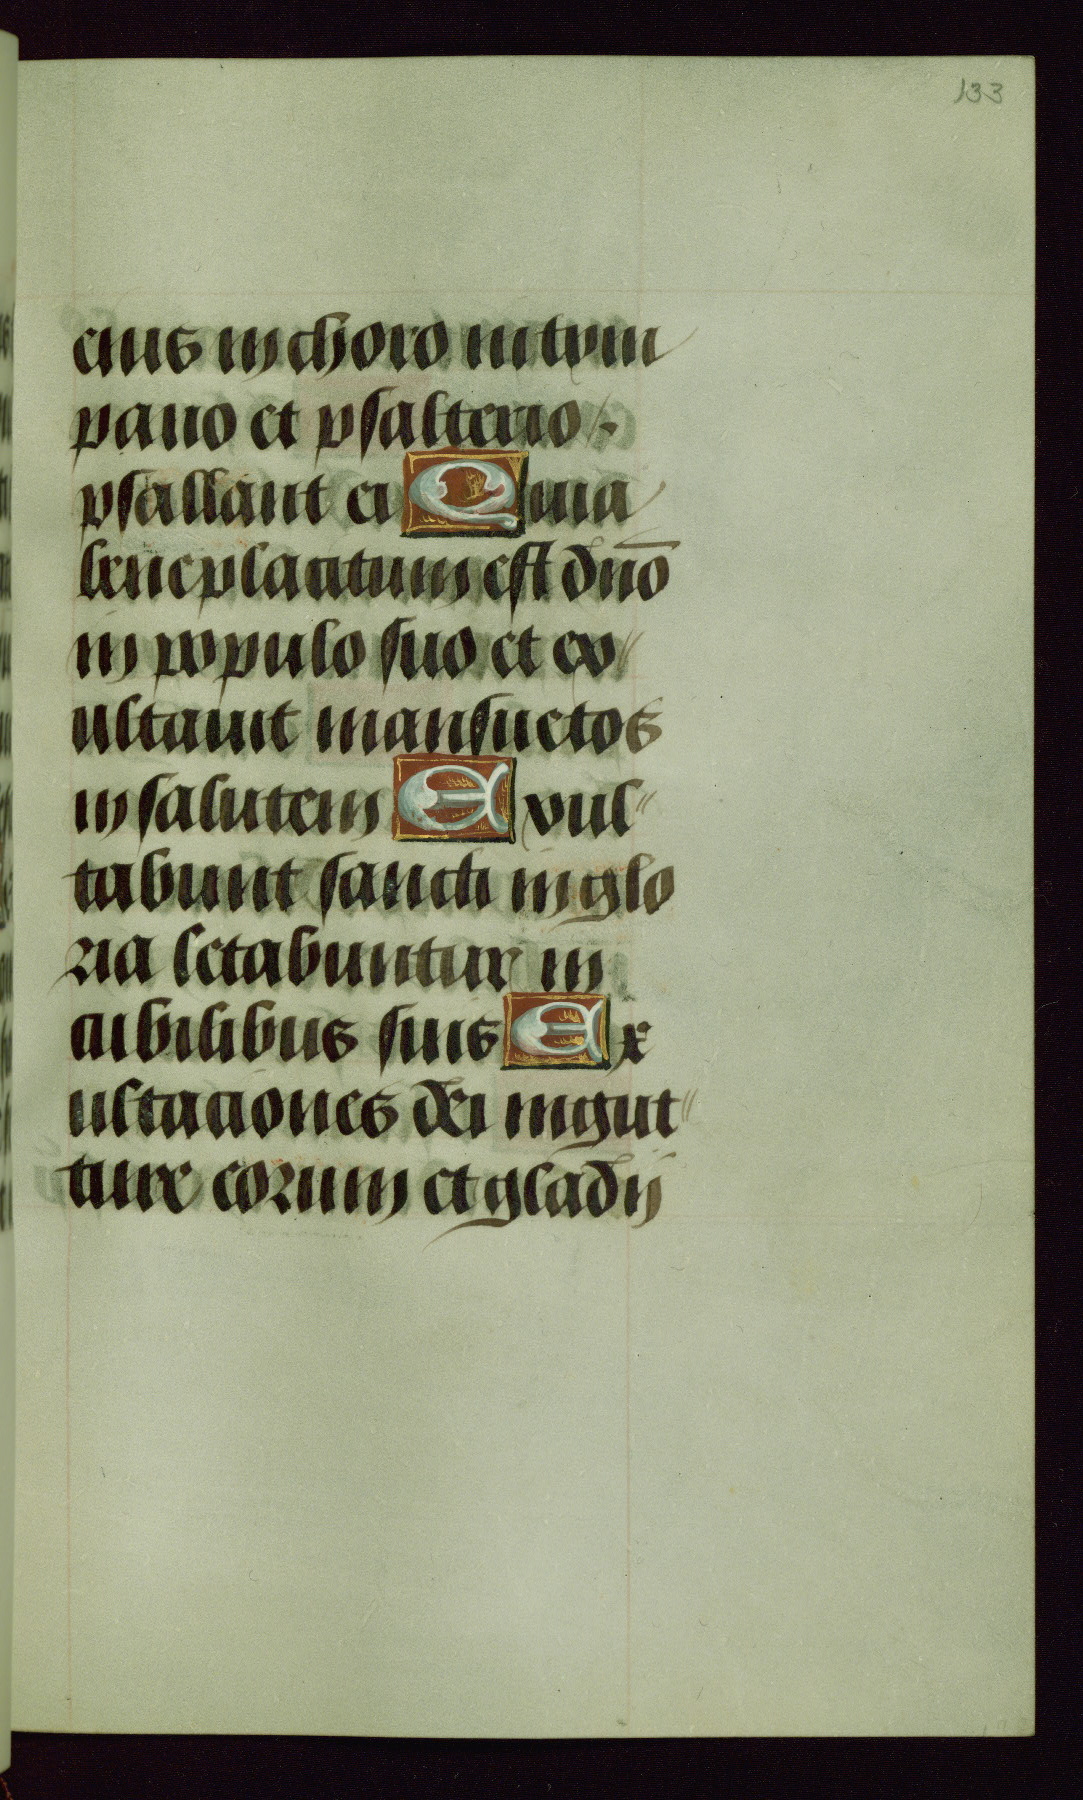 133
eius in choro in tym
pano et psalterio
psallant ei Quia
beneplacitum est dn̄o
in populo suo et ex
ultauit mansuetos
in salutem Exul
tabunt sancti in glo
ria letabuntur in
cubilibus suis Ex
ultaciones dei in gut
ture eorum et gladij